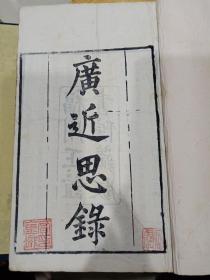 廣近思錄